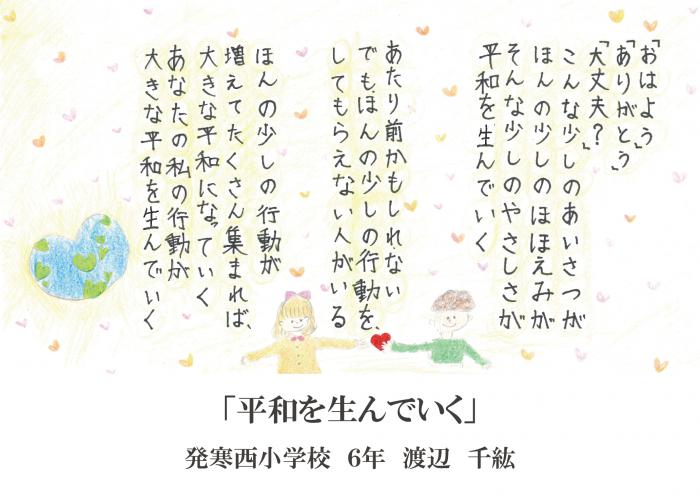 「おはよう」
「ありがとう」
「大丈夫？」
こんな少しのあいさつが
ほんの少しのほほえみが
そんな少しのやさしさが
平和を生んでいく
あたり前かもしれない
でもほんの少しの行動を、
してもらえない人がいる
ほんの少しの行動が
増えてたくさん集まれば、
大きな平和になっていく
あなたの私の行動が
大きな平和を生んでいく
「平和を生んでいく」
発寒西小学校 6年 渡辺 千紘